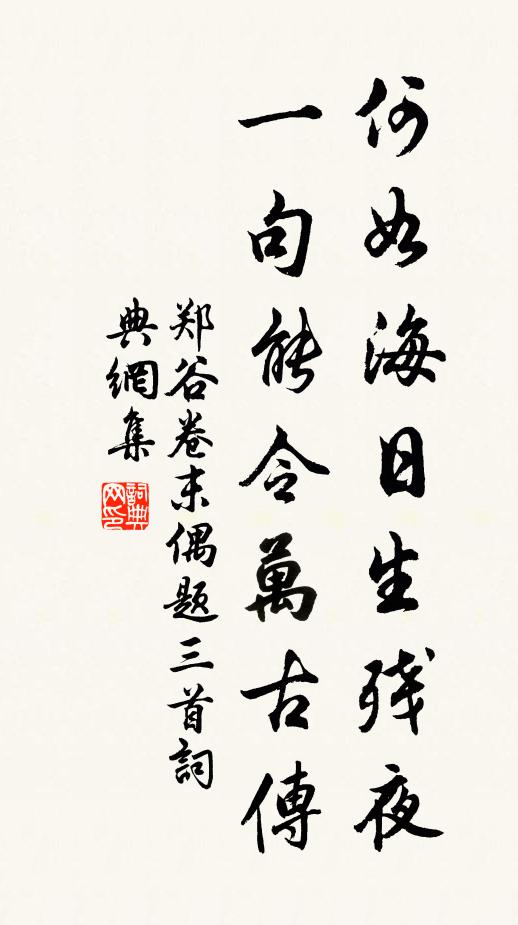 何如海日生残夜
一句能令萬古傳
郑谷卷末偶题三首詞
典網集
詞典
网印